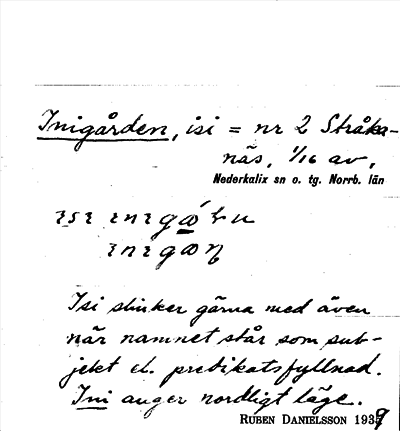 Inigården, isi = nr 2 Stråka-
näs, 1/16 av,
Nederkalix sn o. tg. Norrb. län
Isi slinker gärna med även
när namnet står som sub-
jekt el. predikatsfyllnad.
Ini anger nordligt läge.
RUBEN DANIELSSON 1939